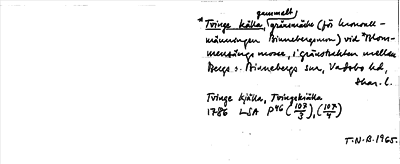 gammalt
*Tvinge källa, (gränsmärke (för kronoall-
männingen Binnebergsmon) vid *Blom-
mensängs mosse, i gränstrakten mellan
Bergs o. Binnebergs snr, Vadsbo hd,
Skar. l.
Tvinge kjälla, Tvingekjälla
1786 LSA P46 (107/3), (107/4)
T.N.B. 1965.